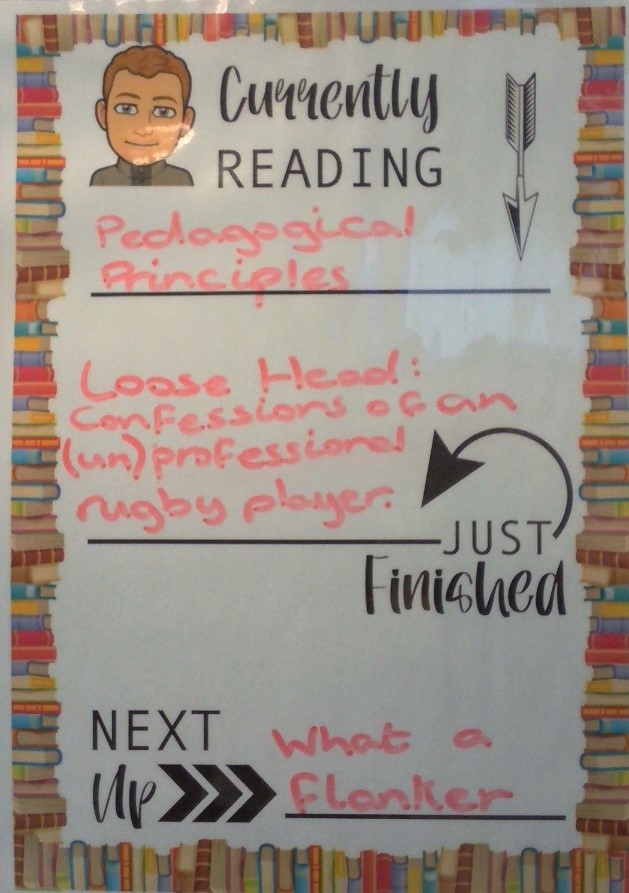 Currently
READING
Pedagogical
Principles
Loose Head:
Confessions of an
(un)professional
rugby player.
JUST
Finished
NEXT
Up
What a
flanker